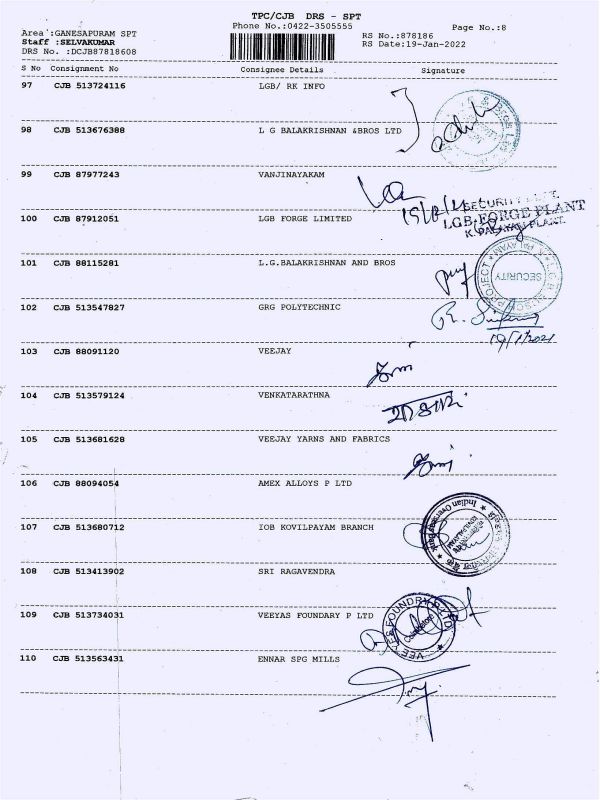 TPC/CJB DRS - SPT
Phone No.:0422-3505555
Page No.:8
Area :GANESAPURAM SPT
Staff :SELVAKUMAR
DRS No. :DCJB87818608
RS No.:878186
RS Date:19-Jan-2022
S No Consignment No Consignee Details Signature
97 CJB 513724116 LGB/ RK INFO
98 CJB 513676388 L G BALAKRISHNAN &BROS LTD
99 CJB 87977243 VANJINAYAKAM
SECURITY
LGB FORGE PLANT
K. PALAYAM PLANT
100 CJB 87912051 LGB FORGE LIMITED
101 CJB 88115281 L.G.BALAKRISHNAN AND BROS
SECURITY
102 CJB 513547827 GRG POLYTECHNIC
19/1/2021
103 CJB 88091120 VEEJAY
104 CJB 513579124 VENKATARATHNA
105 CJB 513681628 VEEJAY YARNS AND FABRICS
106 CJB 88094054 AMEX ALLOYS P LTD
107 CJB 513680712 IOB KOVILPAYAM BRANCH
Indian Overseas Bank
108 CJB 513413902 SRI RAGAVENDRA
109 CJB 513734031 VEEYAS FOUNDARY P LTD
VEE YES FOUNDRY P LTD
Coimbatore
110 CJB 513563431 ENNAR SPG MILLS